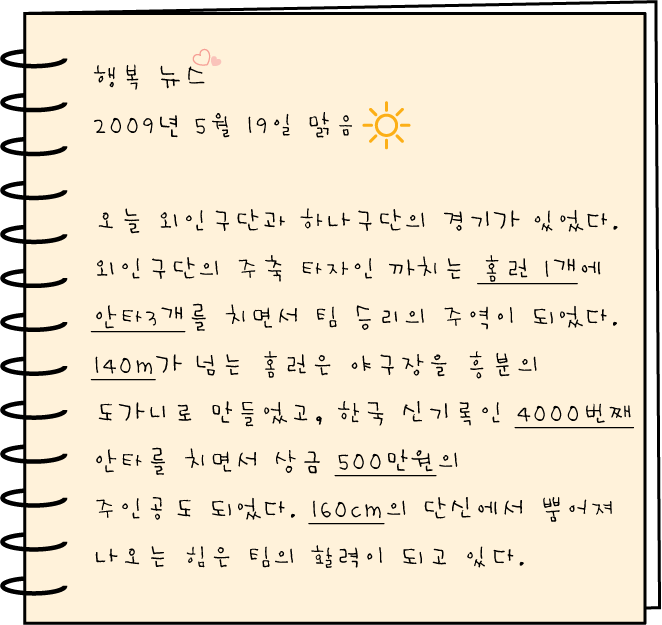 행복 뉴스
2009년 5월 19일 맑음
오늘 외인구단과 하나구단의 경기가 있었다.
외인구단의 주축 타자인 까치는 홈런 1개에
안타3개를 치면서 팀 승리의 주역이 되었다.
140m가 넘는 홈런은 야구장을 흥분의
도가니로 만들었고, 한국 신기록인 4000번째
안타를 치면서 상금 500만원의
주인공도 되었다. 160cm의 단신에서 뿜어져
나오는 힘은 팀의 활력이 되고 있다.